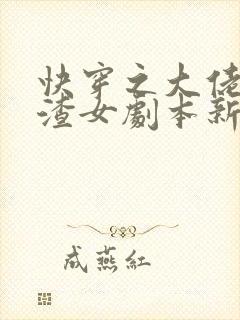 快穿之大佬
渣女劇本新
成燕紅